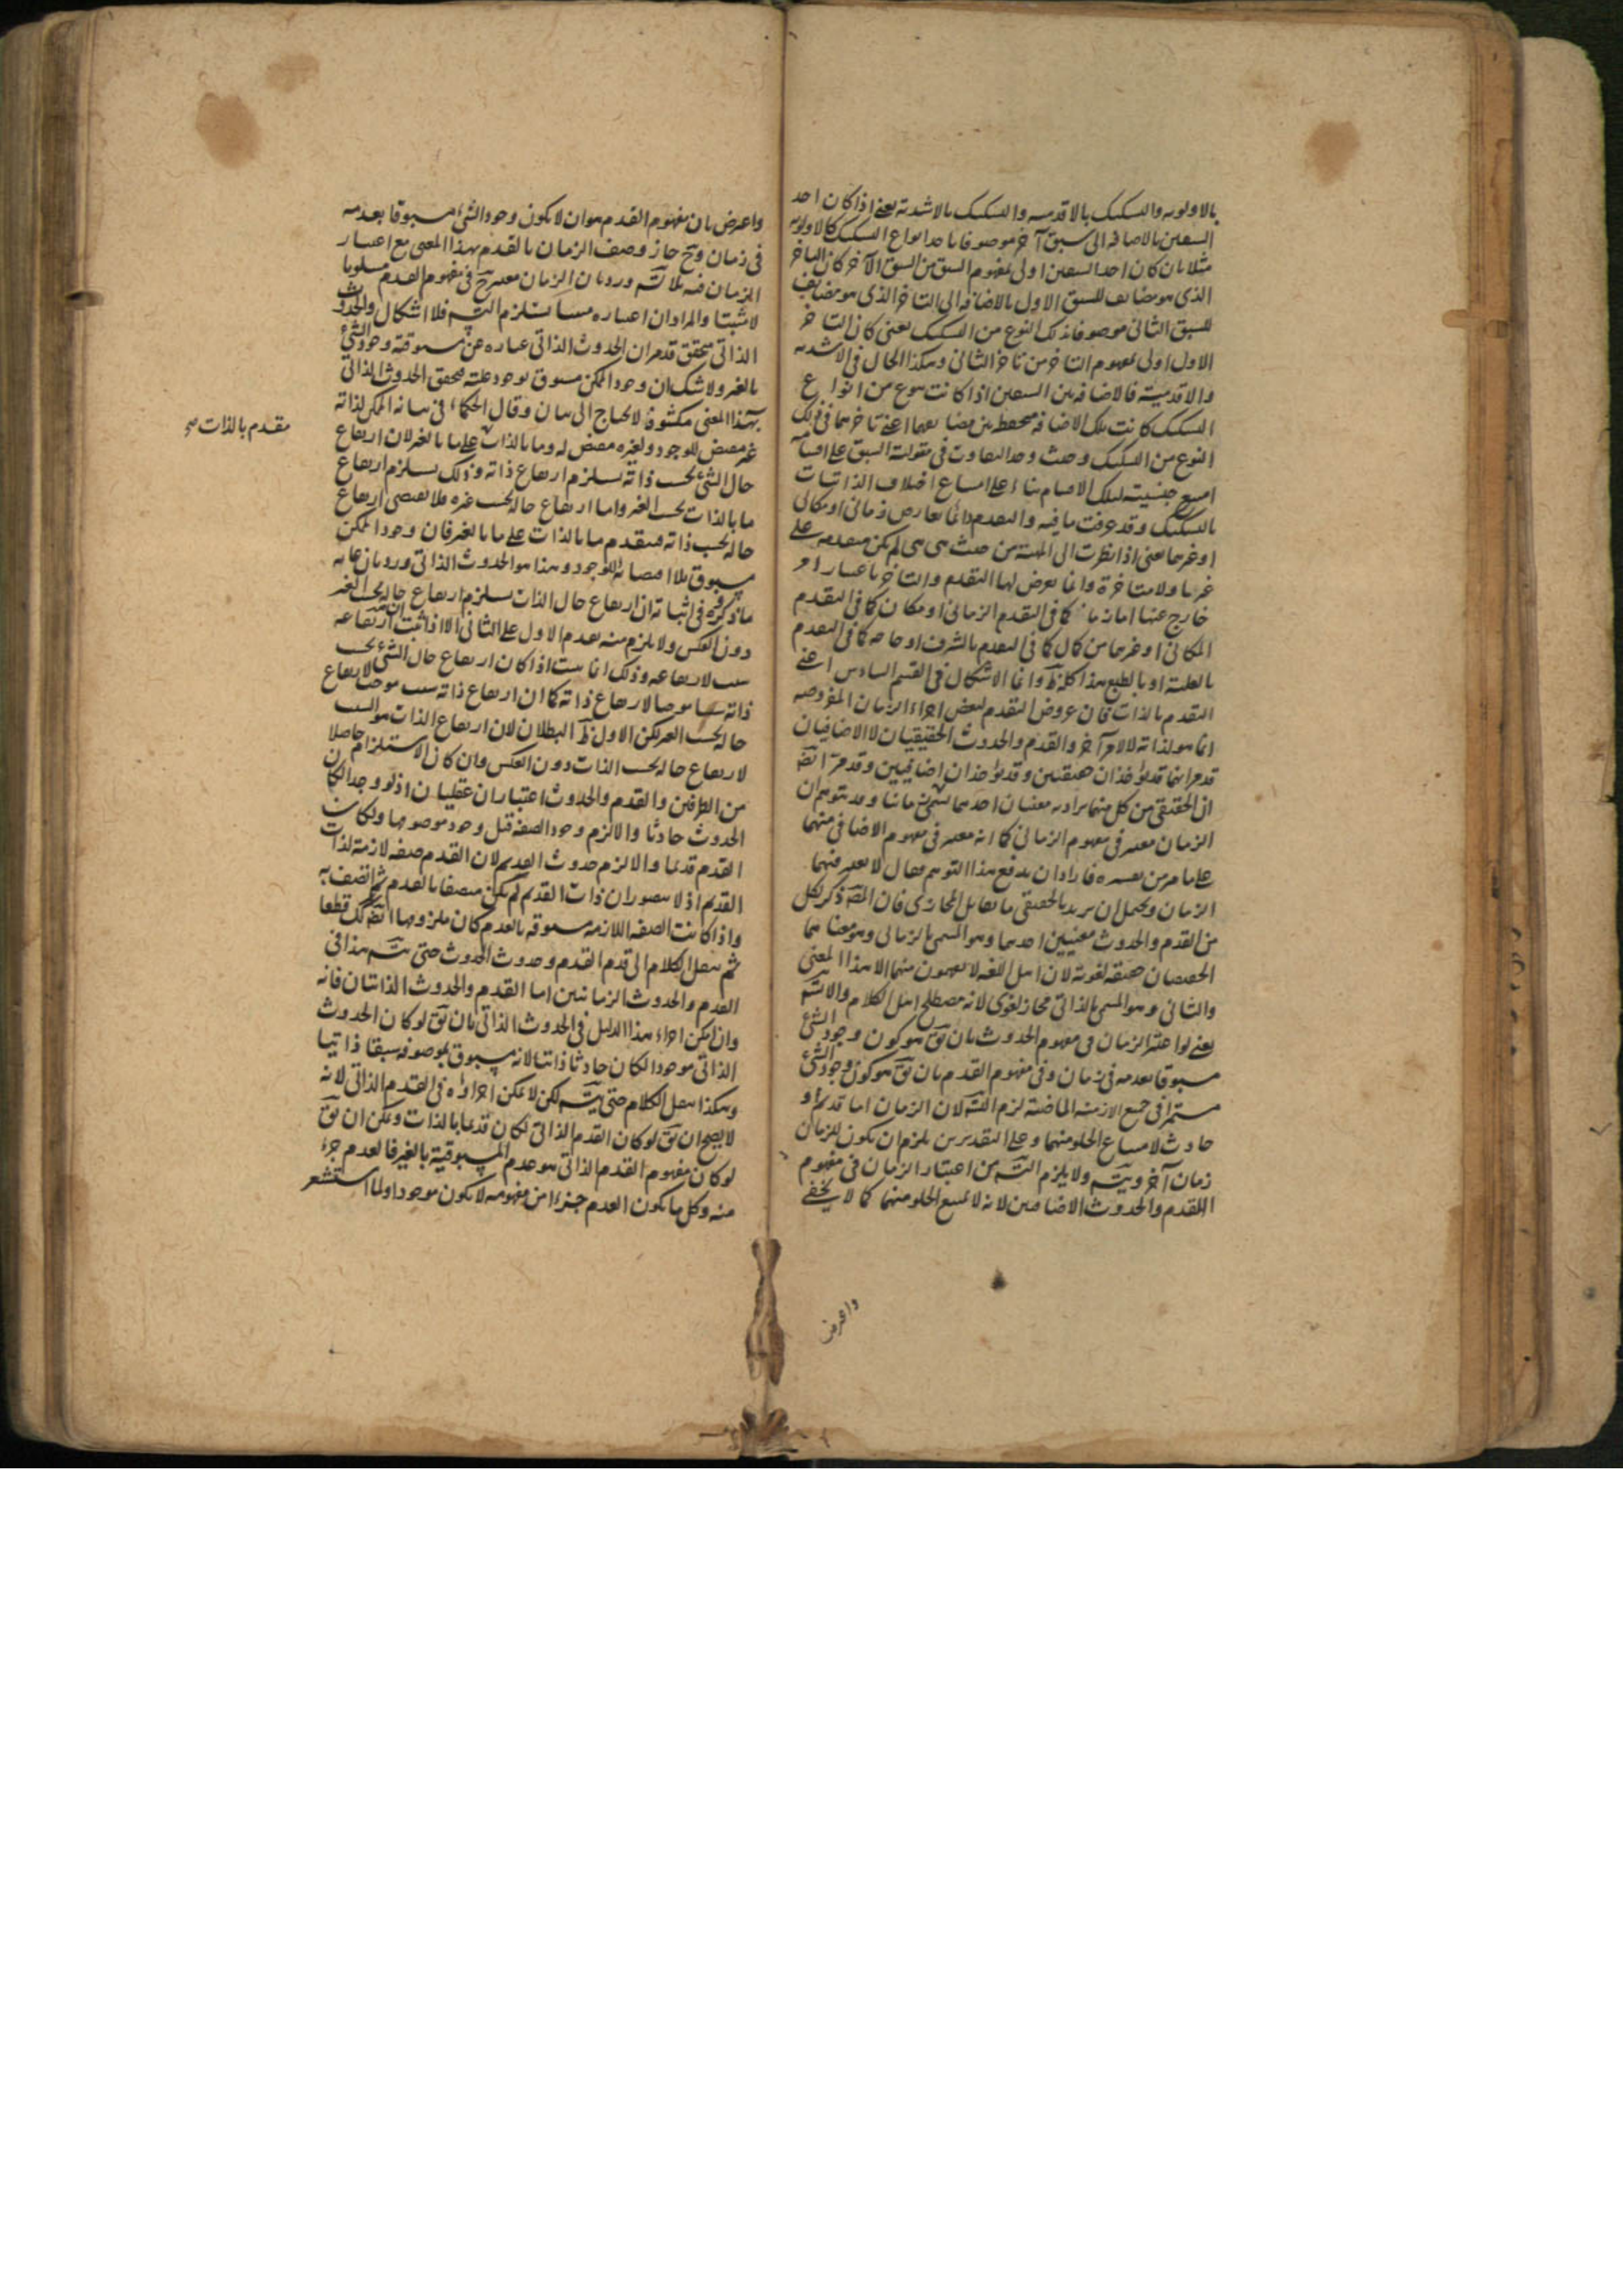 بالاولوية والتشكيك بالاقدمية والتشكيك بالاشدية يعنى اذا كان احد
السبقين بالاضافة الى سبق آخر موصوفا باحد انواع التشكيك كالاولوية
مثلا بان كان احد السبقين اولى بمفهوم السبق من السبق الآخر كان التاخر
الذى هو مضايف للسبق الاول بالاضافة الى التاخر الذى هو مضايف
للسبق الثانى موصوفا بذلك النوع من التشكيك يعنى كان التاخر
الاول اولى بمفهوم التاخر من تاخر الثانى وهكذا الحال فى الاشدية
والاقدمية فالاضافة بين السبقين اذا كانت بنوع من انواع
التشكيك كانت تلك الاضافة منحفظة بين مضايفهما اعنى تاخرهما فى ذلك
النوع من التشكيك وحيث وجد التفاوت فى مقولية السبق على اقسامه
امتنع جنسيته لتلك الاقسام بناء على امتناع اختلاف الذاتيات
بالتشكيك وقد عرفت ما فيه والتقدم دائما بعارض زمانى او مكانى
او غيرهما يعنى اذا نظرت الى المهية من حيث هى هى لم يكن متقدمة على
غيرها ولا متاخرة وانما يعرض لها التقدم والتاخر باعتبار امر
خارج عنها اما زمان كما فى التقدم الزمانى او مكان كما فى التقدم
المكانى او غيرهما من كمال كما فى التقدم بالشرف او حاجة كما فى التقدم
بالعلية او بالطبع هذا كله ظ وانما الاشكال فى القسم السادس اعنى
التقدم بالذات فان عروض التقدم لبعض اجزاء الزمان المفروضة
انما هو لذاته لا لامر آخر والقدم والحدوث الحقيقيان لا الاضافيان
قد مر انهما قد يؤخذان حقيقيين وقد يؤخذان اضافيين وقد مر ايضا
ان الحقيقى من كل منهما يراد به معنيان احدهما يسمى زمانيا وقد يتوهم ان
الزمان معتبر فى مفهوم الزمانى كما انه معتبر فى مفهوم الاضافى منهما
على ما مر من تفسيره فاراد ان يدفع هذا التوهم فقال لا يعتبر فيهما
الزمان ويحتمل ان يريد بالحقيقى ما يقابل المجازى فان المص ذكر لكل
من القدم والحدوث معنيين احدهما وهو المسمى بالزمانى وهو معناهما
الحقيقيان حقيقة لغوية لان اهل اللغة لا يفهمون منهما الا هذا المعنى
والثانى وهو المسمى بالذاتى مجاز لغوى لانه مصطلح اهل الكلام والا لتسلسل
يعنى لو اعتبر الزمان فى مفهوم الحدوث بان يق هو كون وجود الشئ
مسبوقا بعدمه فى زمان وفى مفهوم القدم بان يق هو كون وجود الشئ
مستمرا فى جميع الازمنة الماضية لزم التس لان الزمان اما قديم او
حادث لامتناع الخلو منهما وعلى التقديرين يلزم ان يكون للزمان
زمان آخر ويتسلسل ولا يلزم التس من اعتبار الزمان فى مفهوم
القدم والحدوث الاضافيين لانه لا يمتنع الخلو منهما كما لا يخفى
واعترض
واعترض بان مفهوم القدم هو ان لا يكون وجود الشئ مسبوقا بعدمه
فى زمان وح جاز وصف الزمان بالقدم بهذا المعنى مع اعتبار
الزمان فيه بلا تس ورد بان الزمان معتبر ح فى مفهوم القدم مسلوبا
لا مثبتا والمراد ان اعتباره مثبتا يستلزم التس فلا اشكال والحدوث
الذاتى متحقق قد مر ان الحدوث الذاتى عبارة عن مسبوقية وجود الشئ
بالغير ولا شك ان وجود الممكن مسبوق بوجود علته فتحقق الحدوث الذاتى
بهذا المعنى مكشوف لا يحتاج الى بيان وقال الحكماء فى بيانه الممكن لذاته
غير مقتض للوجود ولغيره مقتض له وما بالذات على ما بالغير لان ارتفاع
مقدم بالذات صح
حال الشئ بحسب ذاته يستلزم ارتفاع ذاته وذلك يستلزم ارتفاع
ما بالذات بحسب الغير واما ارتفاع حاله بحسب غيره فلا يقتضى ارتفاع
حاله بحسب ذاته فيتقدم ما بالذات على ما بالغير فان وجود الممكن
مسبوق بلا اقتضائه للوجود وهذا هو الحدوث الذاتى ورد بان غاية
ما ذكره فى اثباته ان ارتفاع حال الذات يستلزم ارتفاع حاله بحسب الغير
دون العكس ولا يلزم منه تقدم الاول على الثانى الا اذا ثبت ان ارتفاعه
سبب لارتفاعه وذلك انما يثبت اذا كان ارتفاع حال الشئ بحسب
ذاته سببا موجبا لارتفاع ذاته كما ان ارتفاع ذاته سبب موجب لارتفاع
حاله بحسب الغير لكن الاول ظ البطلان لان ارتفاع الذات هو السبب
لارتفاع حاله بحسب الذات دون العكس وان كان الاستلزام حاصلا
من الطرفين والقدم والحدوث اعتباران عقليان اذ لو وجدا لكان
الحدوث حادثا والا لزم وجود الصفة قبل وجود موصوفها ولكان
القدم قديما والا لزم حدوث القديم لان القدم صفة لازمة لذات
القديم اذ لا يتصور ان ذات القديم لم يكن متصفا بالقدم ثم اتصف به
واذا كانت الصفة اللازمة مسبوقة بالعدم كان ملزومها ايضا كك قطعا
ثم ننقل الكلام الى قدم القدم وحدوث الحدوث حتى يتس هذا فى
القدم والحدوث الزمانيين اما القدم والحدوث الذاتيان فانه
وان امكن اجراء هذا الدليل فى الحدوث الذاتى بان يق لو كان الحدوث
الذاتى موجودا لكان حادثا ذاتيا لانه مسبوق بموصوفه سبقا ذاتيا
وهكذا ننقل الكلام حتى يتس لكن لا يمكن اجراؤه فى القدم الذاتى لانه
لا يصح ان يق لو كان القدم الذاتى لكان قديما بالذات ويمكن ان يق
لو كان مفهوم القدم الذاتى هو عدم المسبوقية بالغير فالعدم جزء
منه وكل ما يكون العدم جزءا من مفهومه لا يكون موجودا ولما استشعر